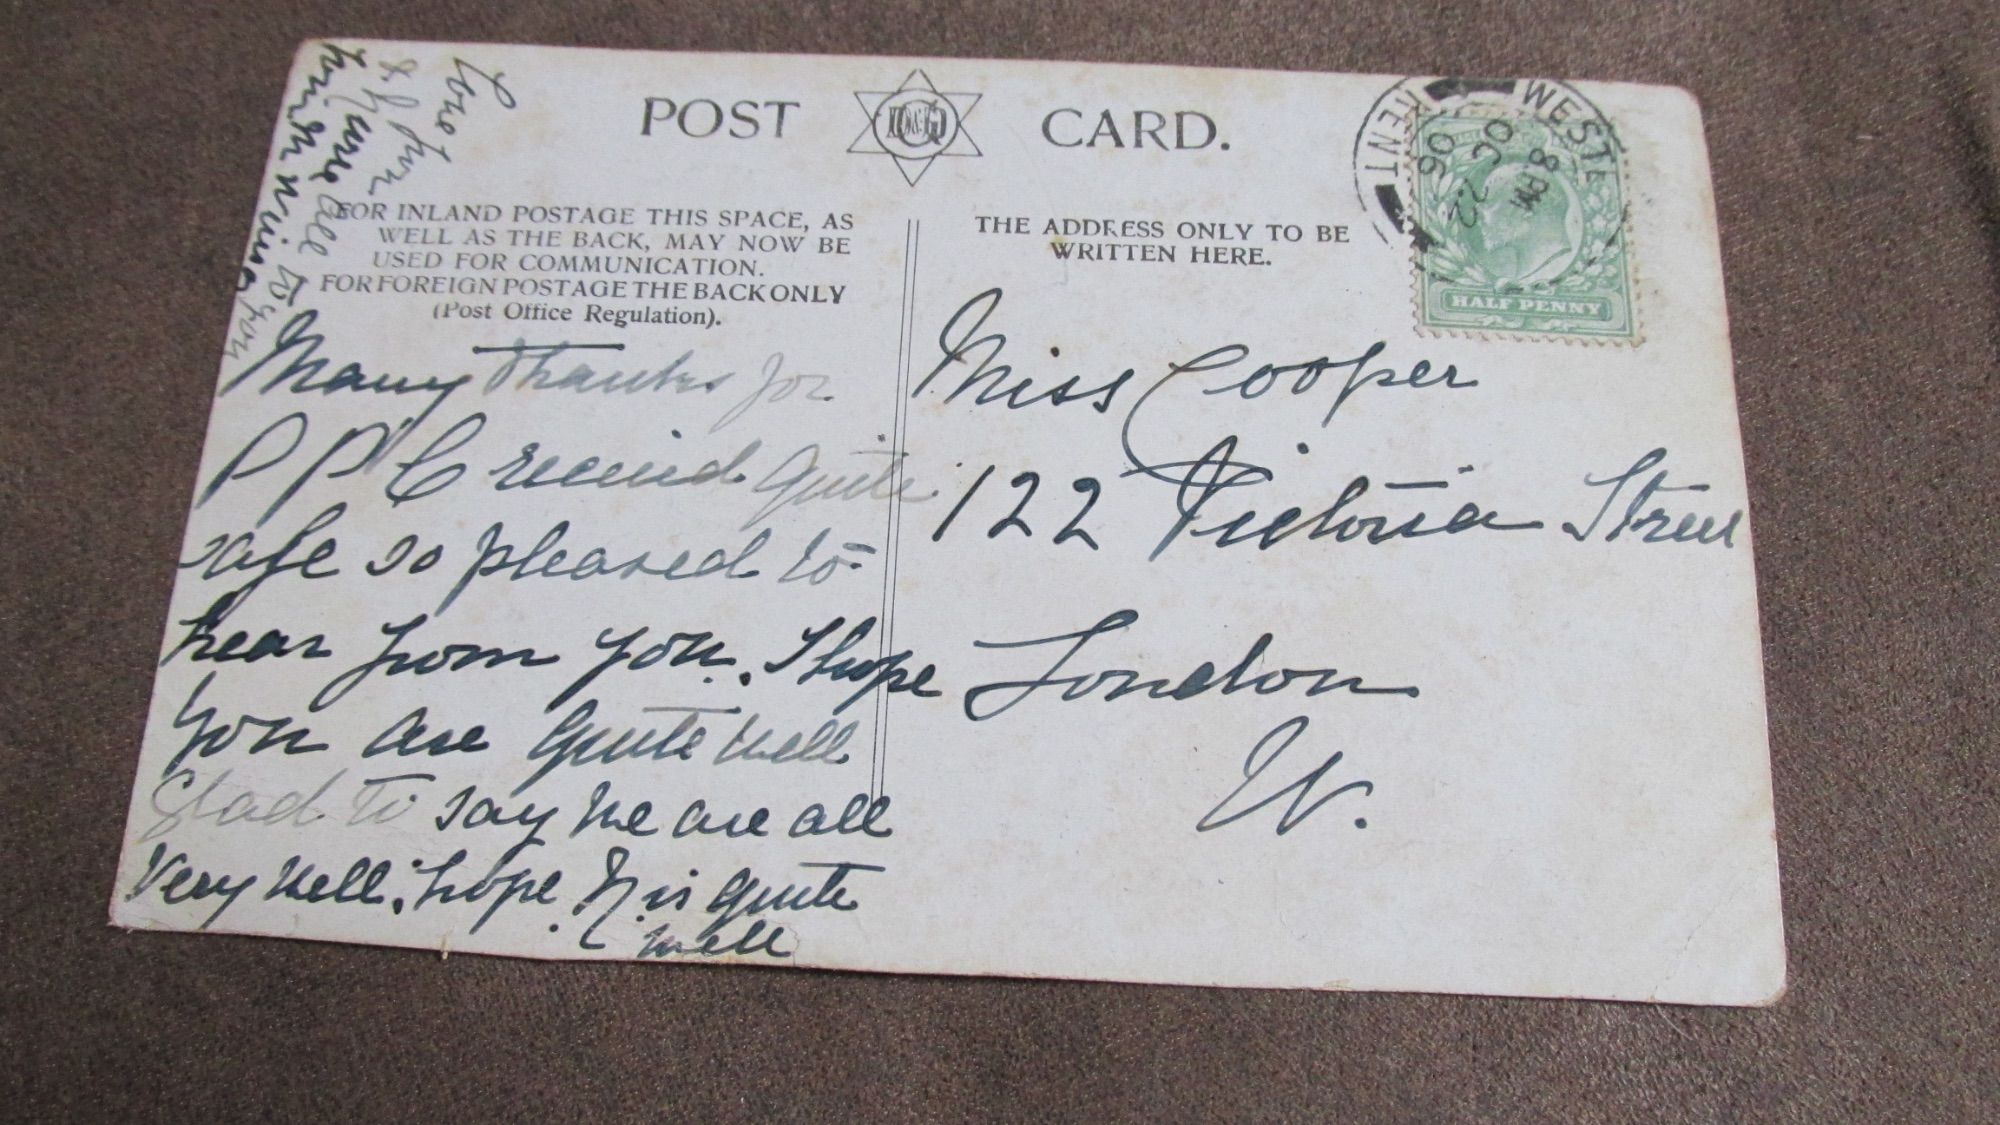 POST CARD.
FOR INLAND POSTAGE THIS SPACE, AS
WELL AS THE BACK, MAY NOW BE
USED FOR COMMUNICATION.
FOR FOREIGN POSTAGE THE BACK ONLY
(Post Office Regulation).
THE ADDRESS ONLY TO BE
WRITTEN HERE.
KENT
8 PM
OC 22
06
HALF PENNY
Many thanks for
P P C received quite
safe so pleased to
hear from you. I hope
you are quite well
Glad to say we are all
Very well. hope is quite
well
Love
all
Miss Cooper
122 Victoria Street
London
W.